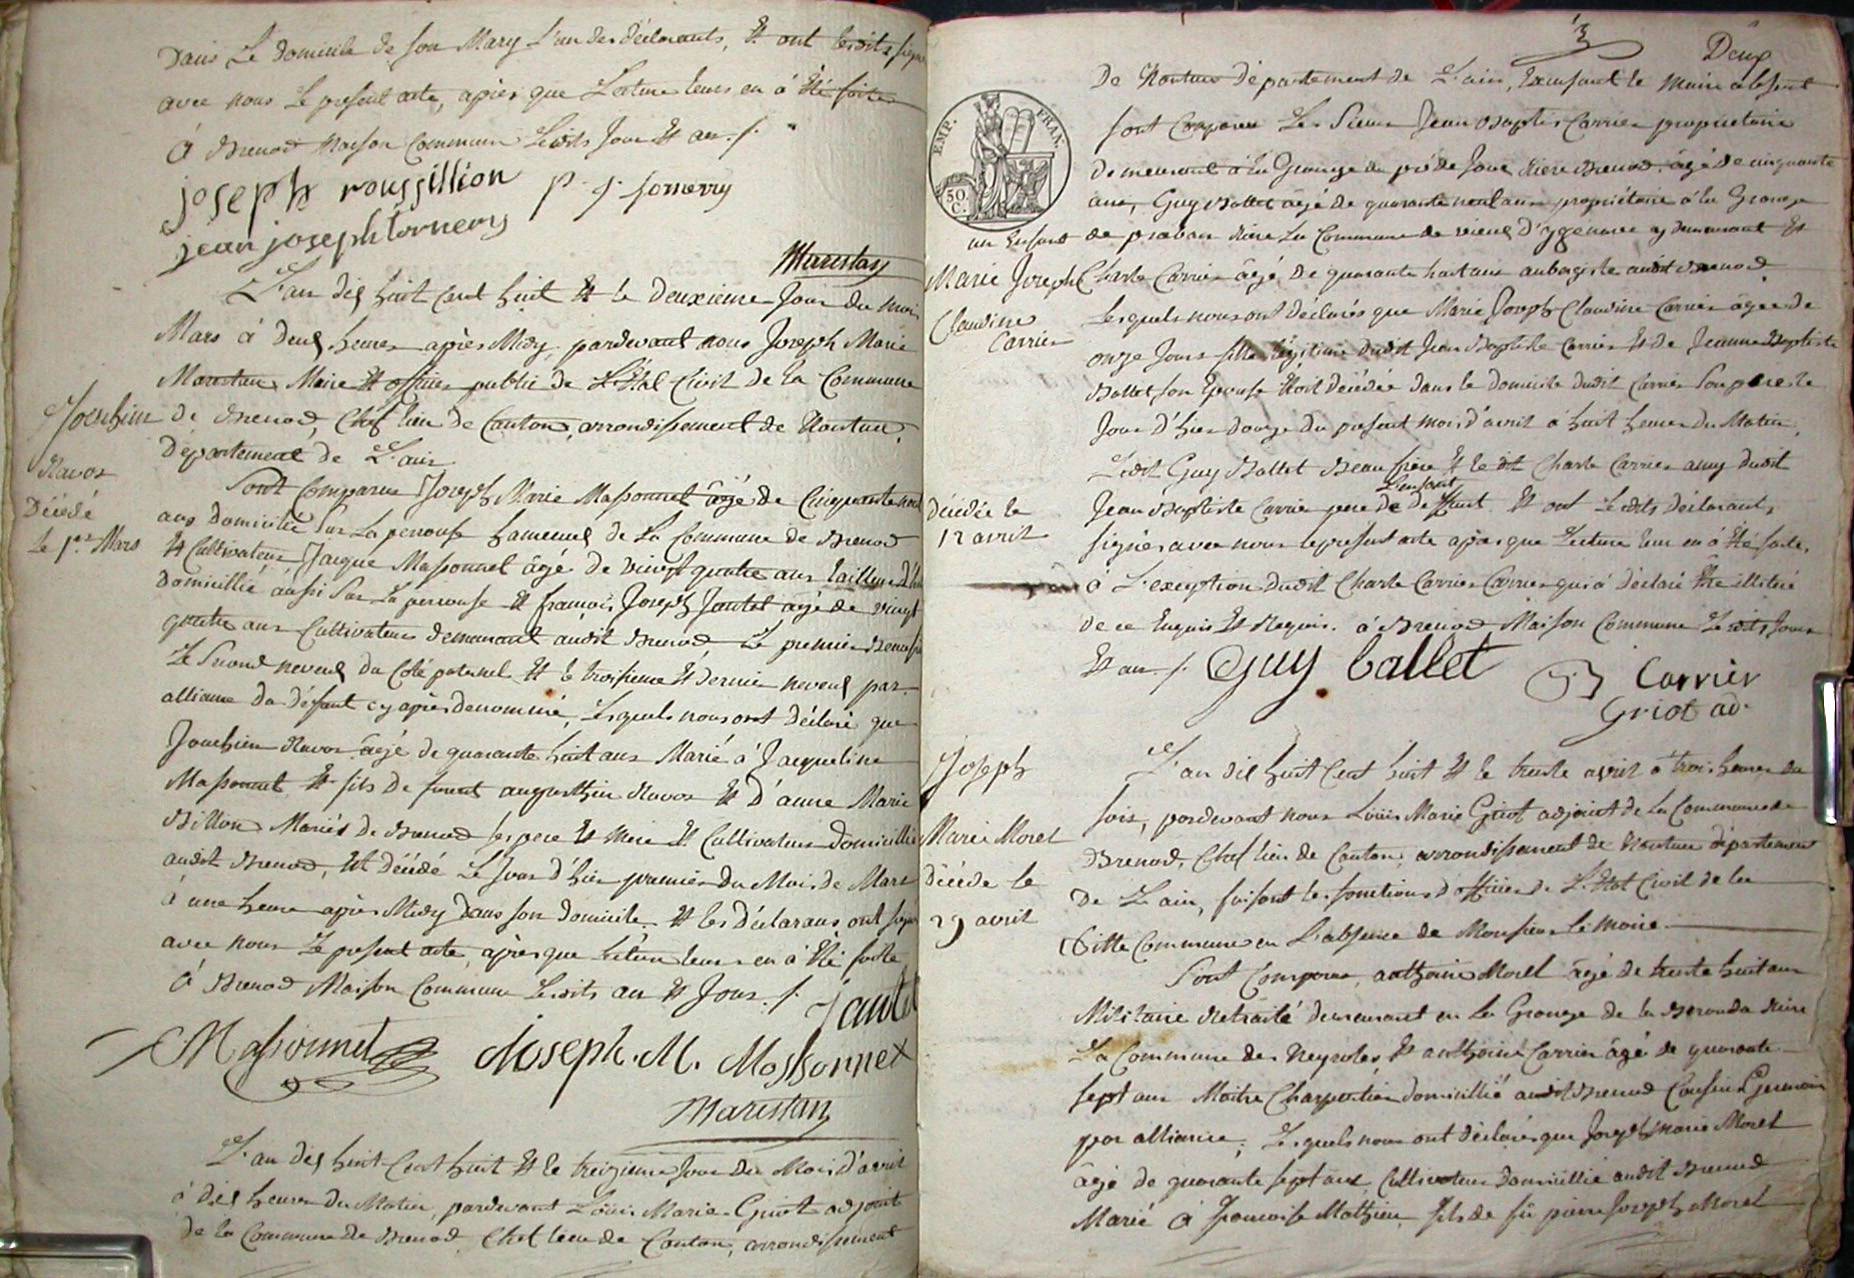 Dans Le domicile de son Mary L'un des déclarants, Et ont lesdits signé
avec nous Le present acte, après que Lecture leurs en à Eté faite
à Brenod Maison Commune Lesdits Jour Et an ./.
joseph roussillion P. J. tornery
jean joseph tornery
Marestan
L'an dix huit Cent huit Et le Deuxieme Jour du mois
Mars à deux heures après Midy, pardevant nous Joseph Marie
Marestan Maire Et officier public de L'Etat Civil de la Commune
de Brenod, Chef lieu de Canton, arrondissement de Nantua,
Departement de L'ain
Joachim
Ravoz
Décédé
le 1.er Mars
Sont Comparus Joseph Marie Massonnet âgé de Cinquante neuf
ans domicilié Sur La perouse hameaux de La Commune de Brenod
Et Cultivateur Jacque Massonnet âgé de vingt quatre ans tailleur d'h
domicillié aussi Sur La perouse Et françois Joseph Jantet âgé de vingt
quatre ans Cultivateur demeurant audit Brenod, Le premier Beaufr
Le Second neveux du Coté paternel Et le troisieme Et dernier neveux par
alliance du défunt cy après denommé, Lesquels nous ont déclaré que
Joachim Ravoz âgé de quarante huit ans Marié à Jacqueline
Massonnet Et fils de feu augusthin Ravoz Et d'anne Marie
Billion Mariés de Brenod ses pere Et Mere Et Cultivateur domicillié
audit Brenod, Est décédé Le Jour d'hier premier du Mois de Mars
à une heure après Midy Dans son domicile Et les déclarans ont signé
avec nous Le present acte, après que lecture leurs en à Eté faitte
à Brenod Maison Commune Lesdits an Et Jour ./.
Jantet
Massonnet Joseph. M. Massonnet
Marestan
L'an dix huit Cent huit Et le treizieme Jour du Mois d'avril
à dix heures du Matin, pardevant Louis Marie Griot adjoint
de la Commune de Brenod Chef lieu de Canton, arrondissement
3
Deux
De Nantua département de L'ain, Exersant le Maire absent
EMP. FRAN.
50
C.
Sont Comparu Le Sieur Jean Baptiste Carrier proprietaire
demeurant à la Grange du pré de Joux Riere Brenod âgé de cinquante
ans, Guy Ballet âgé de quarante neuf ans propriétaire à la Grange
de praban Riere La Commune de vieux d'yzenave y demeurant Et
Charle Carrier âgé de quarante huit ans aubergiste audit Brenod
un Enfant
Marie Joseph
Claudine
Carrier
Lesquels nous ont déclarés que Marie Joseph Claudine Carrier âgée de
onze Jours fille légitime dudit Jean Baptiste Carrier Et de Jeanne Baptiste
Ballet son Epouse Etoit décédée dans le domicile dudit Carrier Son pere le
Jour d'hier douze du present mois d'avril à huit heures du Matin,
Ledit Guy Ballet Beau frère Et le dit Charle Carrier amy dudit
Jean Baptiste Carrier pere de L'enfant deffunt Et ont Lesdits déclarants
décédée le
12 avril
signés avec nous le present acte après que Lecture leur en à Eté faite,
à L'exception dudit Charle Carrier Carrier qui à déclaré Etre illitéré
de ce Enquis Et Requis. à Brenod Maison Commune Lesdits Jour
Et an ./. Guy ballet JB Carrier
Griot ad.
Joseph
Marie Morel
décédé le
29 avril
L'an dix huit Cent huit Et le trente avril à trois heures du
soir, pardevant nous Louis Marie Griot adjoint de La Commune de
Brenod, Chef lieu de Canton arrondissement de Nantua département
De L'ain, faisant les fonctions d'officier de L'Etat Civil de la
ditte Commune en L'absence de Monsieur le Maire
Sont Comparu, anthoine Morel âgé de trente huit ans
Militaire Retraité demeurant en La Grange de la Beronda Riere
La Commune des Neyroles Et anthoine Carrier âgé de quarante
sept ans Maitre Charpentier domicillié audit Brenod Cousin Germain
par alliance, Lesquels nous ont déclarés que Joseph Marie Morel
âgé de quarante sept ans Cultivateur domicillié audit Brenod
Marié à françoise Mathieu fils de fû pierre Joseph Morel